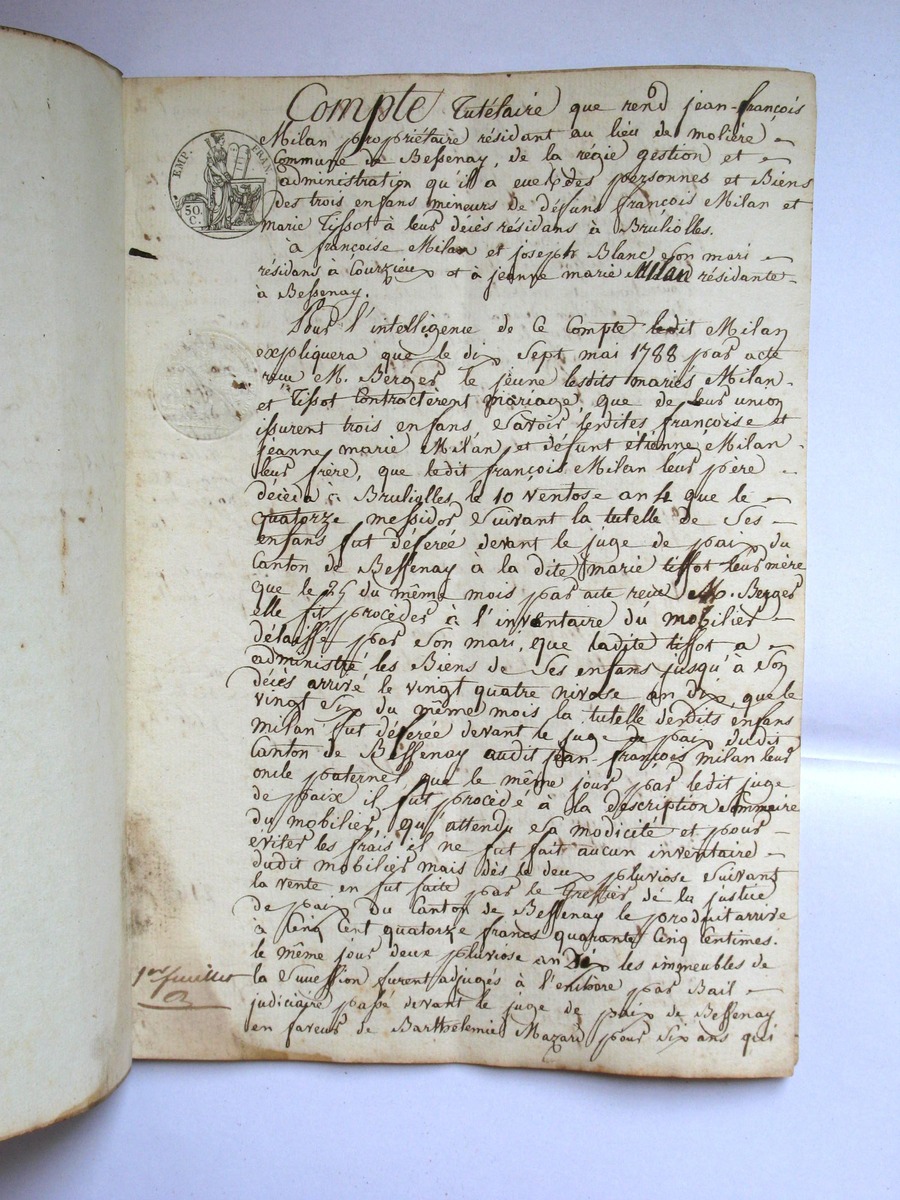 Compte tutélaire que rend jean-françois
Milan propriétaire résidant au lieu de molière
Commune de Bessenay, de la régie gestion et
administration qu'il a eue des personnes et Biens
des trois enfans mineurs de défunt françois Milan et
marie Tissot à leur décès résidans à Brulioles.
à françoise Milan et joseph Blanc son mari
résidans à Courzieux et à jeanne marie Milan résidante
à Bessenay.
Pour l'intelligence de ce Compte ledit Milan
expliquera que le dix sept mai 1788 par acte
reçu M. Berger le jeune lesdits mariés Milan
et Tissot Contractèrent mariage, que de leur union
issurent trois enfans Savoir lesdites françoise et
jeanne marie Milan et défunt étienne Milan
leur frère, que ledit françois Milan leur père
décéda à Brulioles le 10 ventose an 4 que le
quatorze messidor Suivant la tutelle de Ses
enfans fut déférée devant le juge de paix du
Canton de Bessenay à la dite marie tissot leur mère
que le 25 du même mois par acte reçu M. Berger
elle fit procéder à l'inventaire du mobilier
délaissé par Son mari, que ladite tissot a
administré les Biens de Ses enfans jusqu'à Son
décès arrivé le vingt quatre nivose an dix, que le
vingt Six du même mois la tutelle desdits enfans
milan fut déférée devant le juge de paix dudit
Canton de Bessenay audit jean-françois milan leur
oncle paternel que le même jour par ledit juge
de paix il fut procédé à la description Sommaire
du mobilier, qu'attendu Sa modicité et pour
éviter les frais il ne fut fait aucun inventaire
dudit mobilier mais dès le deux pluviose Suivant
la vente en fut faite par le Greffier de la justice
de paix du Canton de Bessenay le produit arrive
à Cinq Cent quatorze francs quarante Cinq Centimes.
le même jour deux pluviose an Dix les immeubles de
la Succession furent adjugés à l'enchère par Bail
judiciaire passé devant le juge de paix de Bessenay
en faveur de Barthelemie Mazard pour Six ans qui
EMP. FRAN.
50. C.
1er feuillet